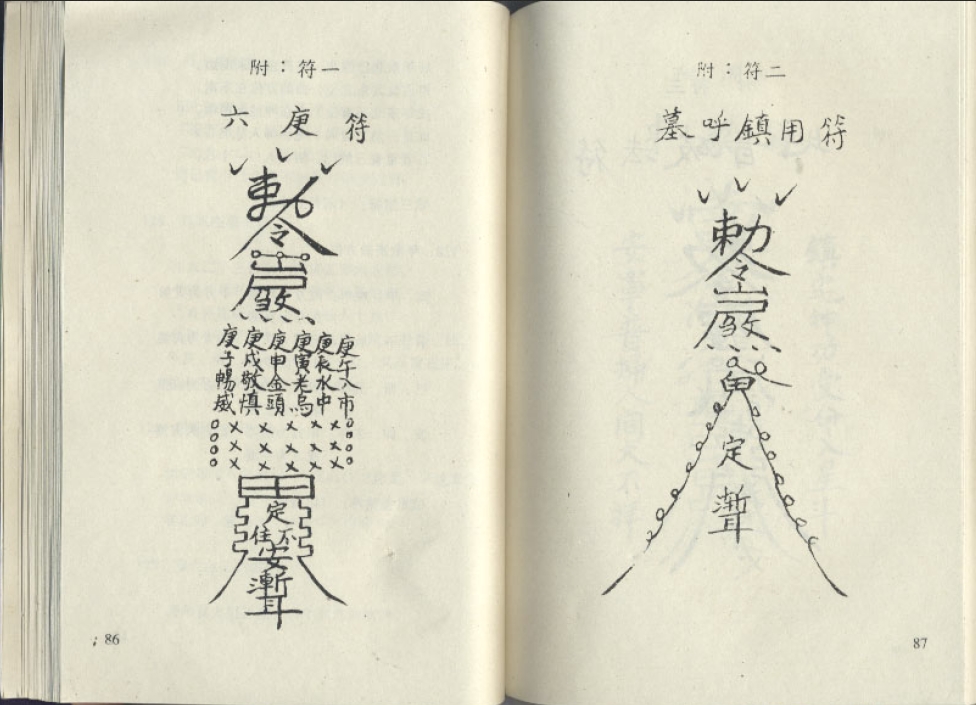 附：符一
六庚符
勅令
庚午入市
庚辰水中
庚寅老烏
庚申金頭
庚戌敬慎
庚子暢威
定
住不
安
86
附：符二
墓呼鎮用符
勅令
定
87